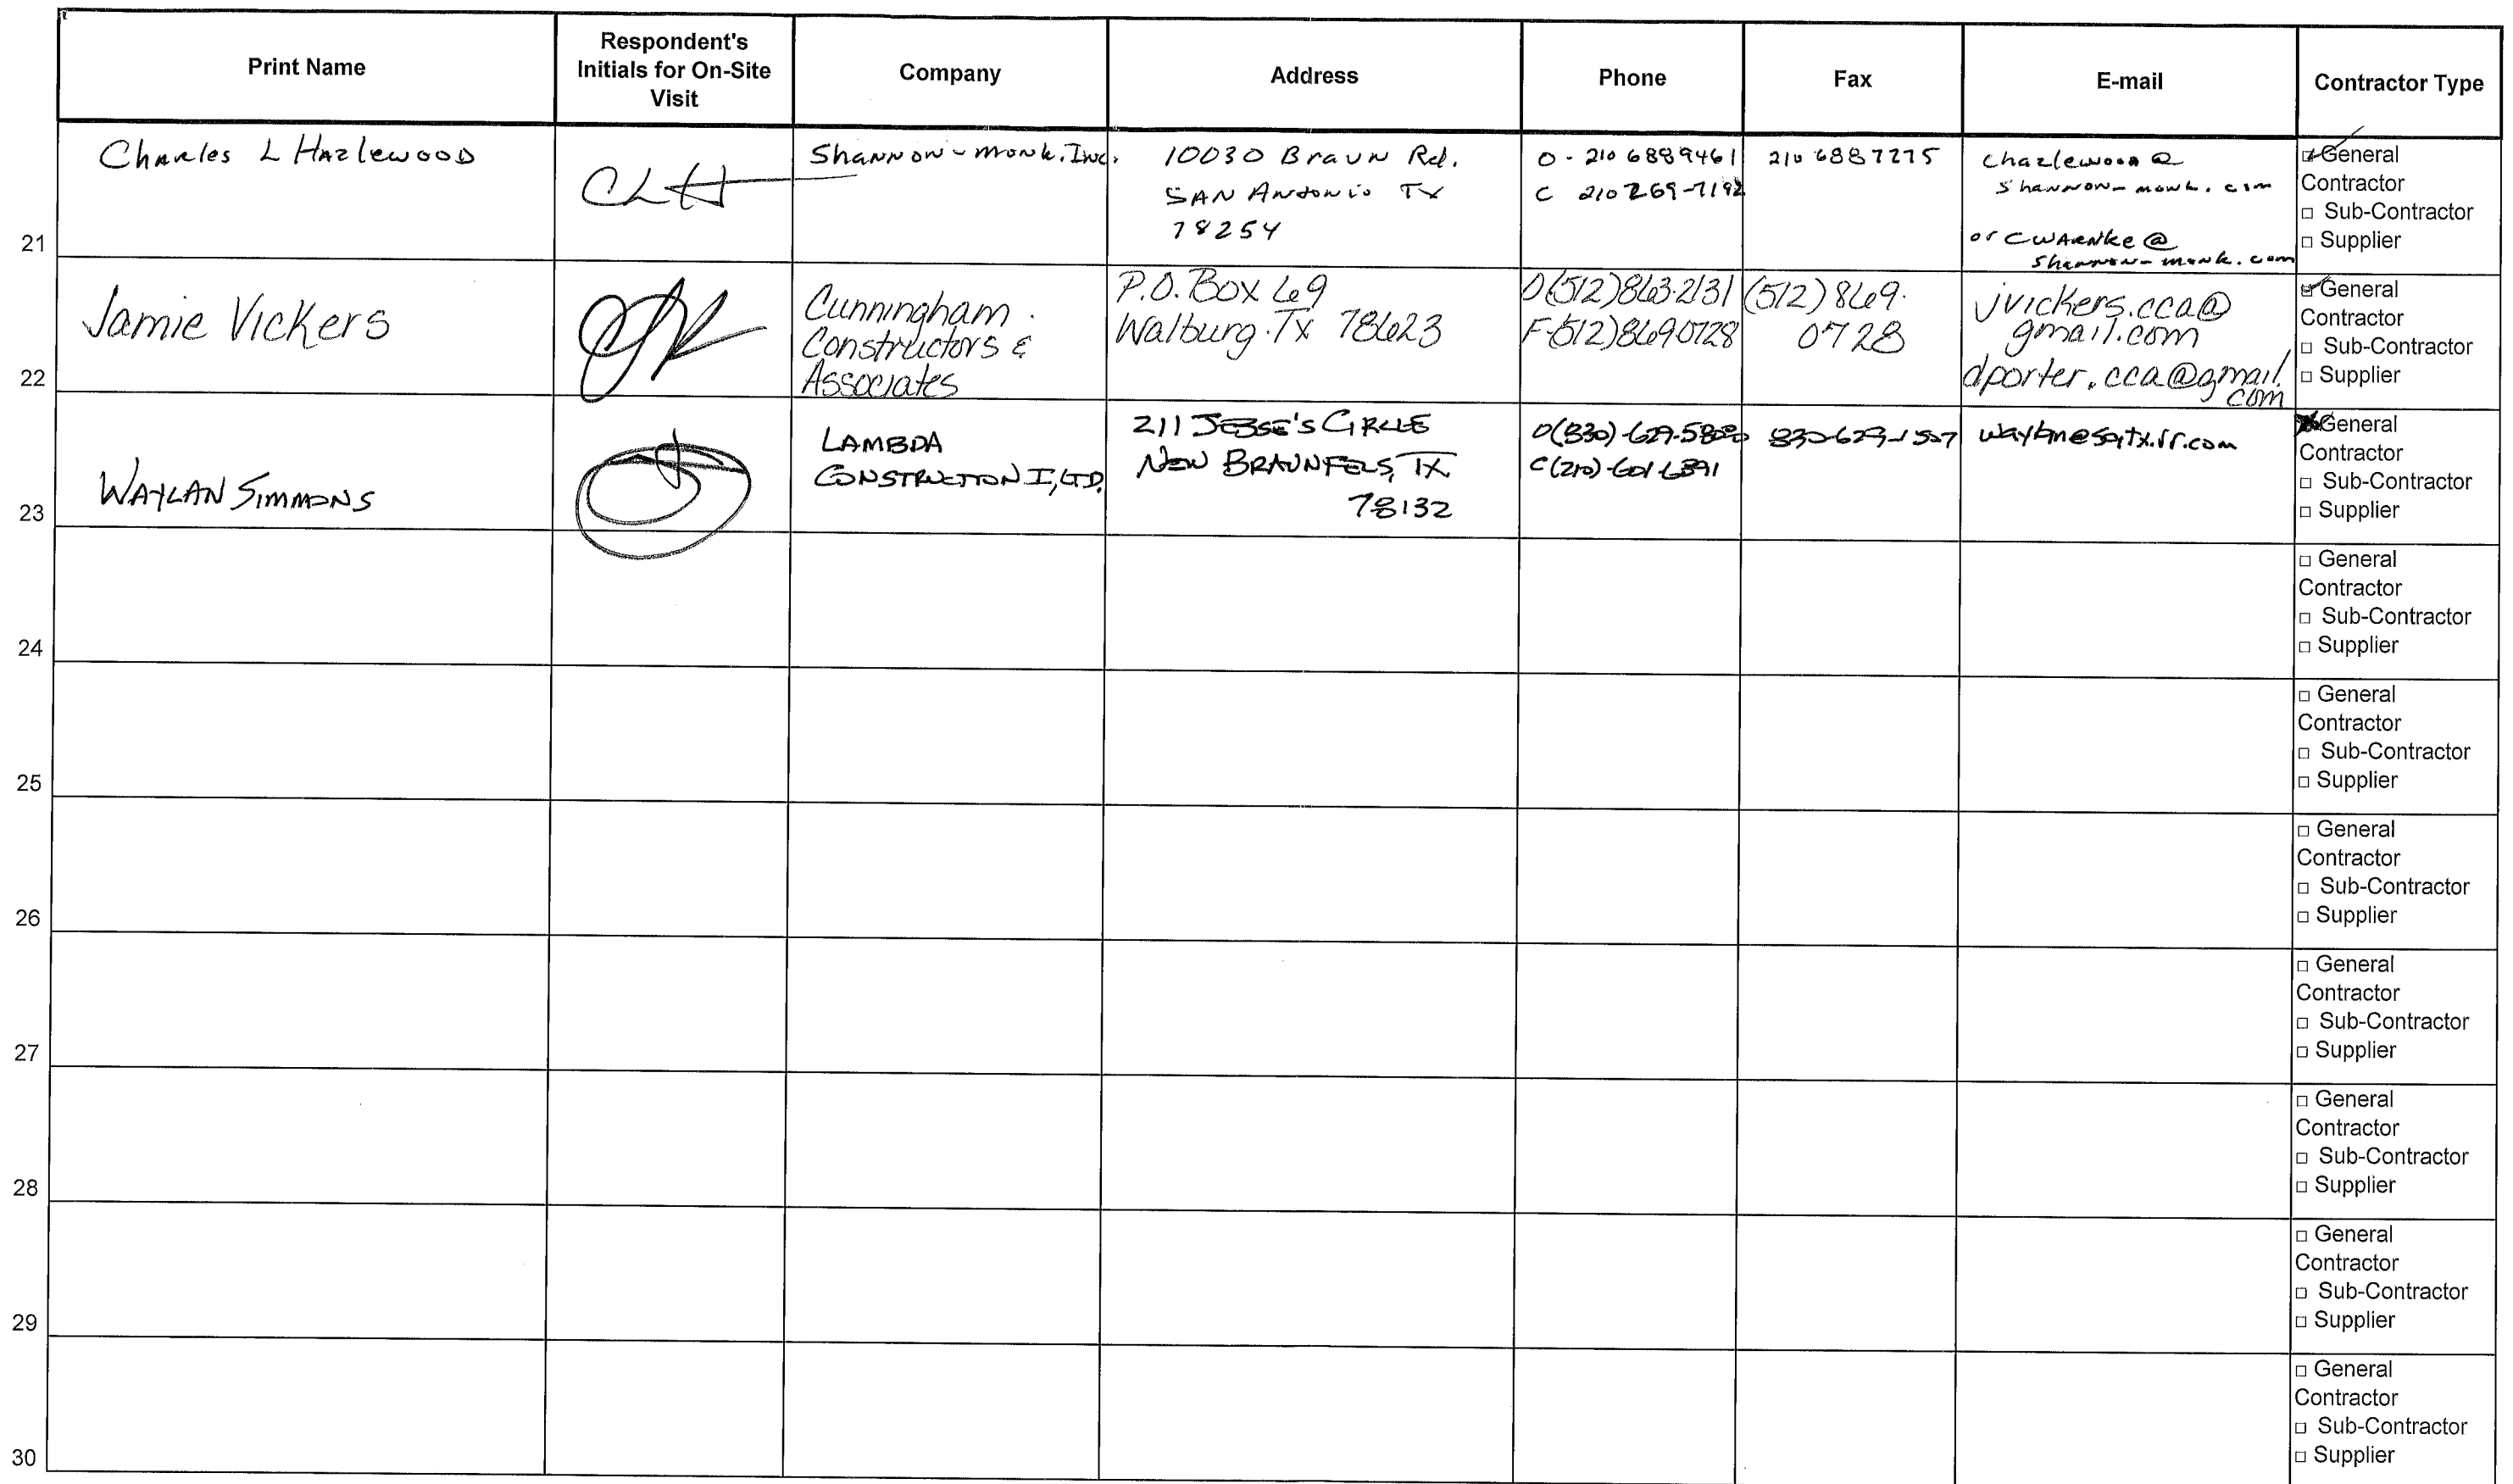 Print Name
Respondent's
Initials for On-Site
Visit
Company
Address
Phone
Fax
E-mail
Contractor Type
21
Charles L Hazlewood
CLH
Shannon-Monk, Inc.
10030 Braun Rd.
San Antonio TX
78254
O - 210 6889461
C 210 269-7192
210 6887275
chazlewood@
shannon-monk.com
or cwarnke@
shannon-monk.com
General
Contractor
Sub-Contractor
Supplier
22
Jamie Vickers
Cunningham
Constructors &
Associates
P.O. Box 69
Walburg. Tx 78623
O(512)863-2131
F-(512)8690728
(512)869.
0728
jvickers.cca@
gmail.com
dporter.cca@gmail.
com
General
Contractor
Sub-Contractor
Supplier
23
WAYLAN SIMMONS
LAMBDA
CONSTRUCTION I, LTD.
211 JESSE'S CIRCLE
NEW BRAUNFELS, TX
78132
C(210)-601-6391
General
Contractor
Sub-Contractor
Supplier
24
General
Contractor
Sub-Contractor
Supplier
25
General
Contractor
Sub-Contractor
Supplier
26
General
Contractor
Sub-Contractor
Supplier
27
General
Contractor
Sub-Contractor
Supplier
28
General
Contractor
Sub-Contractor
Supplier
29
General
Contractor
Sub-Contractor
Supplier
30
General
Contractor
Sub-Contractor
Supplier